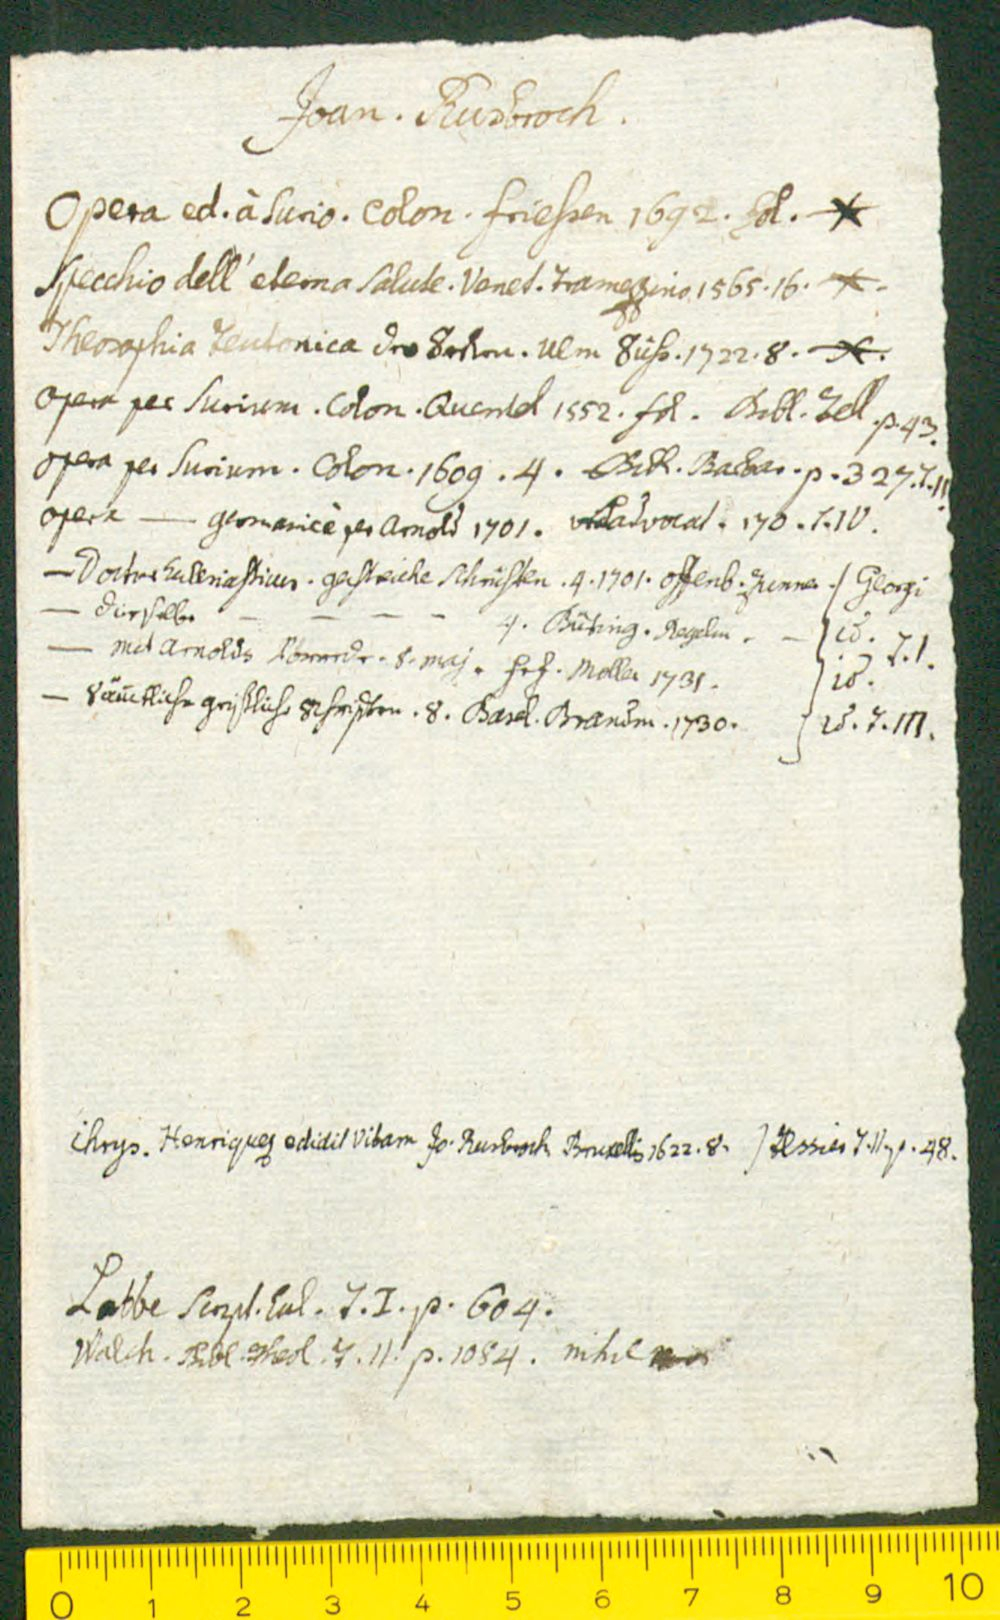 Joan. Rusbroch.
Opera ed. à Surio. Colon. friessen 1692. fol.
Specchio dell' eterna Salute. Venet. Tramezzino 1565. 16.
Theosophia Teutonica Ulm 1722. 8.
opera per Surium. Colon. Quentel 1552. fol. Bibl. Zell. p. 43.
opera per Surium. Colon. 1609. 4. p. 327. T. II.
opera — germanicè per Arnold 1701. 170. T. IV.
— Doctor Ecclesiasticus. geistreiche Schrifften. 4. 1701. Offenb. Zunner. } Georgi
— dieselbe — — — — 4. Büding. Regelin. — } id. T. I.
— mit Arnolds 8. maj. Moller 1731. } id.
— Sämtliche geistliche Schriften. 8. Basel. Brandm. 1730. } id. T. III.
Chrys. Henriquez edidit Vitam Jo. Rusbroch Bruxellis 1622. 8. } T. II. p. 48.
Labbe Script. Eccl. T. I. p. 604.
Walch. Bibl. Theol. T. II. p. 1084. nihil
0 1 2 3 4 5 6 7 8 9 10